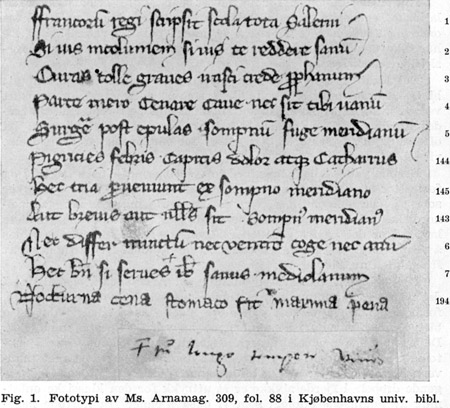 ffrancorū regi scripsit scola tota Salerni 1
Si uis incolumem si uis te reddere sanū 2
Curas tolle graues irasci crede ꝓphanum 3
Parce mero Cenare Caue nec sit tibi uanū 4
Surgē post epulas sompnū fuge meridianū 5
Pigricies febris Capitis dolor atqꝫ Catharrus 144
Hec tria ꝓueniunt ex sompno meridiano 145
Aut breuis aut nłłs sit Sompnꝰ meridianꝰ 143
Nec differ minctū nec ventrē coge nec anū 6
Hec bn̄ si serues sanus mediolanum 7
Nocturna cena stomaco fit maxima pena 194
Fig. 1. Fototypi av Ms. Arnamag. 309, fol. 88 i Kjøbenhavns univ. bibl.